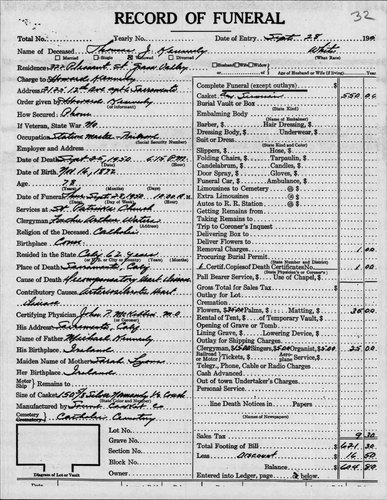 RECORD OF FUNERAL
32
Total No. Yearly No. Date of Entry Sept. 28 19
Name of Deceased Thomas J. Kennedy White
Married Single Widowed Divorced (What Race)
Residence 322 Pleasant St. Grass Valley Husband Wife Widow of Age of Husband or Wife (if living) Years
Charge to Howard Kennedy
Address 2125 12th Ave Sacramento
Order given by Howard Kennedy
How Secured Phone
If Veteran, State War No
Occupation Station master - Railroad
(Social Security Number)
Employer and Address
Date of Death Sept. 25, 1950 6:15 P.M.
Date of Birth Nov 16, 1872
Age 78
(Years) (Months) (Days)
Date of Funeral Thur Sept 28, 1950 10:00 A.M.
Services at St. Patricks Church
Clergyman Father Arthur Watson
Religion of the Deceased Catholic
Birthplace Iowa
Resided in the State Calif 62 years
Place of Death Sacramento, Calif
Cause of Death
Contributory Causes Arteriosclerotic Heart
disease
Certifying Physician John P. M.D.
His Address Sacramento, Calif
Name of Father Michael Kennedy
His Birthplace Ireland
Maiden Name of Mother Sarah Lyons
Her Birthplace Ireland
Motor Ship Remains to
Size of Casket
(State Color and Number)
Manufactured by Casket Co
Cemetery Catholic Cemetery
Crematory
Lot No.
Grave No.
Section No.
Block No.
Owner
Diagram of Lot or Vault
Complete Funeral (except outlays)
Casket 550 00
Burial Vault or Box
(State Kind)
Embalming Body
(Name of Embalmer)
Barber, $ Hair Dressing, $
Dressing Body, $ Underwear, $
Suit or Dress
(State Kind and Color)
Slippers, $ Hose, $
Folding Chairs, $ Tarpaulin, $
Candelabrum, $ Candles, $
Door Spray, $ Gloves, $
Funeral Car, $ Ambulance, $
Limousines to Cemetery @ $
Extra Limousines @ $
Autos to R. R. Station @ $
Getting Remains from
Taking Remains to
Trip to Coroner's Inquest
Delivering Box to
Deliver Flowers to
Removal Charges 1 00
Procuring Burial Permit
(State Number and District)
1 Certif. Copies of Death Certificate No. 1 00
(State Physician's or Coroner's)
Pall Bearer Service, $ Use of Chapel, $
Gross Total for Sales Tax $
Outlay for Lot
Cremation
Flowers, $35.00 Palms, $ Matting, $ 35 00
Rental of Tent, $ of Temporary Vault, $
Opening of Grave or Tomb
Lining Grave, $ Lowering Device, $
Outlay for Shipping Charges
Clergyman, $ Singers, $5.00 Organist, $5.00 25 00
Railroad or Motor Tickets, $ Aeroplane Service, $
Telegr., Phone, Cable or Radio Charges
Cash Advanced
Out of town Undertaker's Charges
Personal Service
line Death Notices in Papers
(Names of Newspapers)
Sales Tax $ 9 30
Total Footing of Bill $ 621 30
Less Discount $ 16 50
Balance $ 604 80
Entered into Ledger, page 2 below